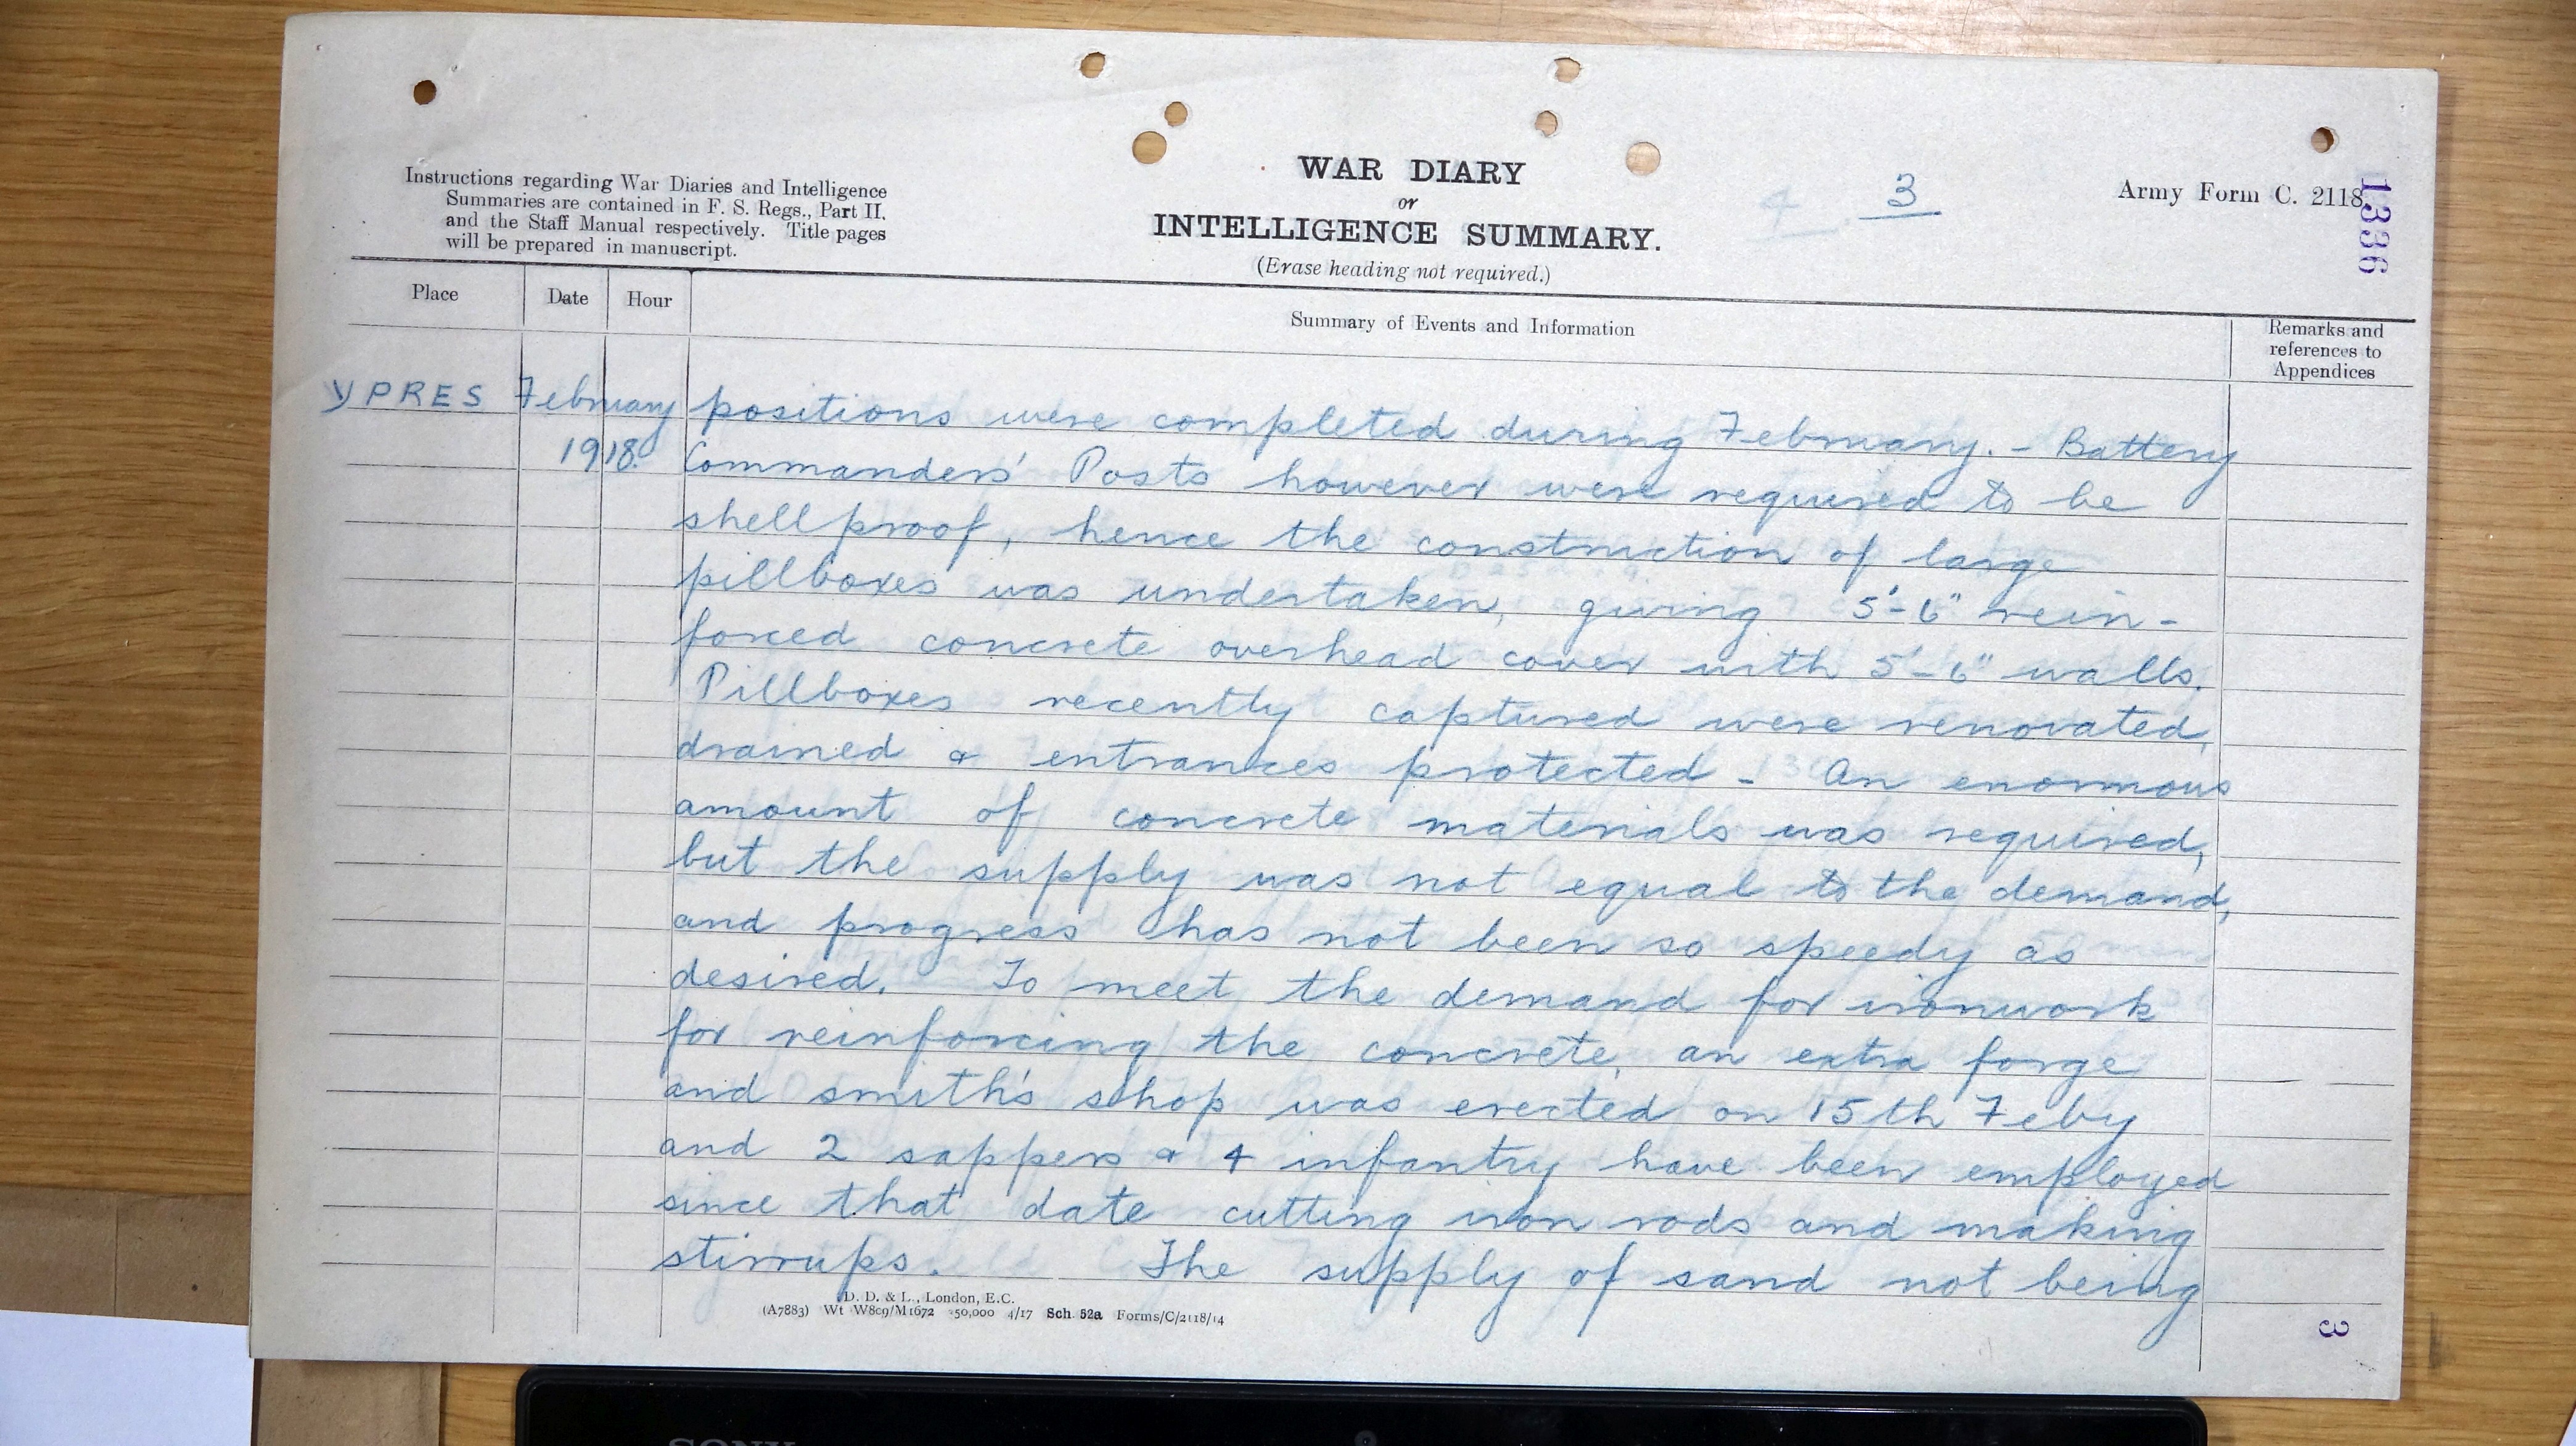 Instructions regarding War Diaries and Intelligence
Summaries are contained in F. S. Regs., Part II,
and the Staff Manual respectively. Title pages
will be prepared in manuscript.
WAR DIARY
or
INTELLIGENCE SUMMARY.
(Erase heading not required.)
4
3
Army Form C. 2118
1336
Place
Date
Hour
Summary of Events and Information
Remarks and
references to
Appendices
YPRES
February
1918.
positions were completed during February. - Battery
Commanders' Posts however were required to be
shellproof, hence the construction of large
pillboxes was undertaken, giving 5'-6" rein-
forced concrete overhead cover with 5'-6" walls.
Pillboxes recently captured were renovated,
drained & entrances protected - An enormous
amount of concrete materials was required,
but the supply was not equal to the demand,
and progress has not been so speedy as
desired. To meet the demand for ironwork
for reinforcing the concrete, an extra forge
and smith's shop was erected on 15th Feby
and 2 sappers & 4 infantry have been employed
since that date cutting iron rods and making
stirrups. The supply of sand not being
D. D. & L., London, E.C.
(A7883) Wt W809/M1672 350,000 4/17 Sch. 52a Forms/C/2118/14
3
SONY